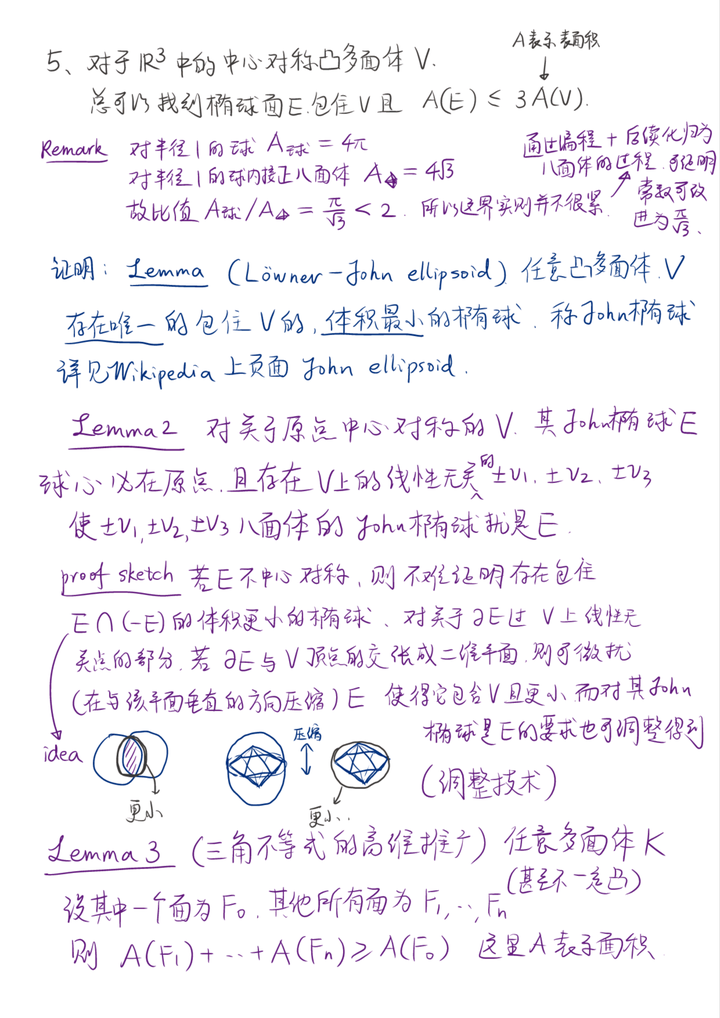 A表示表面积
5、对于 ℝ³ 中的中心对称凸多面体 V.
总可以找到椭球面E.包住V且 A(E) ≤ 3A(V).
Remark 对半径1的球 A球 = 4π
对半径1的球内接正八面体 A = 4√3
故比值 A球/A = π/√3 < 2. 所以这界实则并不很紧.
通过编程 + 后续化归为
八面体的过程.可证明
常数可改
进为 π/√3.
证明: Lemma (Löwner-John ellipsoid) 任意凸多面体.V
存在唯一的包住V的,体积最小的椭球. 称John椭球
详见Wikipedia 上页面 John ellipsoid.
Lemma 2 对关于原点中心对称的V. 其John椭球E
球心必在原点,且存在V上的线性无关的±v₁, ±v₂, ±v₃
使±v₁,±v₂,±v₃八面体的 John椭球就是E.
proof sketch 若E不中心对称,则不难证明存在包住
E∩(-E)的体积更小的椭球、对关于∂E过 V上线性无
关点的部分.若∂E与V顶点的交张成二维平面.则可微扰
(在与该平面垂直的方向压缩)E 使得它包含V且更小.而对其John
椭球是E的要求也可调整得到
(调整技术)
idea
更小
压缩
更小..
Lemma 3 (三角不等式的高维推广) 任意多面体K
(甚至不一定凸)
设其中一个面为F₀.其他所有面为F₁,..,Fₙ
则 A(F₁)+…+A(Fₙ)≥A(F₀) 这里A表示面积.